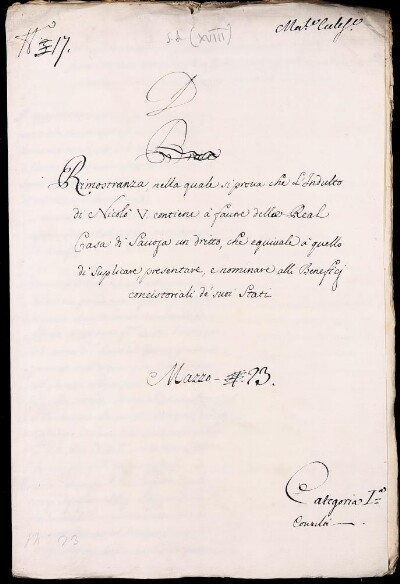 N.° 17.
s.d. (XVIII)
Mat.e Eccles.e
D
Rimostranza nella quale si prova che L'Indulto
di Nicolò V contiene à favore della Real
Casa di Savoja un dritto, che equivale à quello
di supplicare, presentare, e nominare alli Beneficj
concistoriali de' suoi Stati
Mazzo - N.° 23.
Categoria I.a